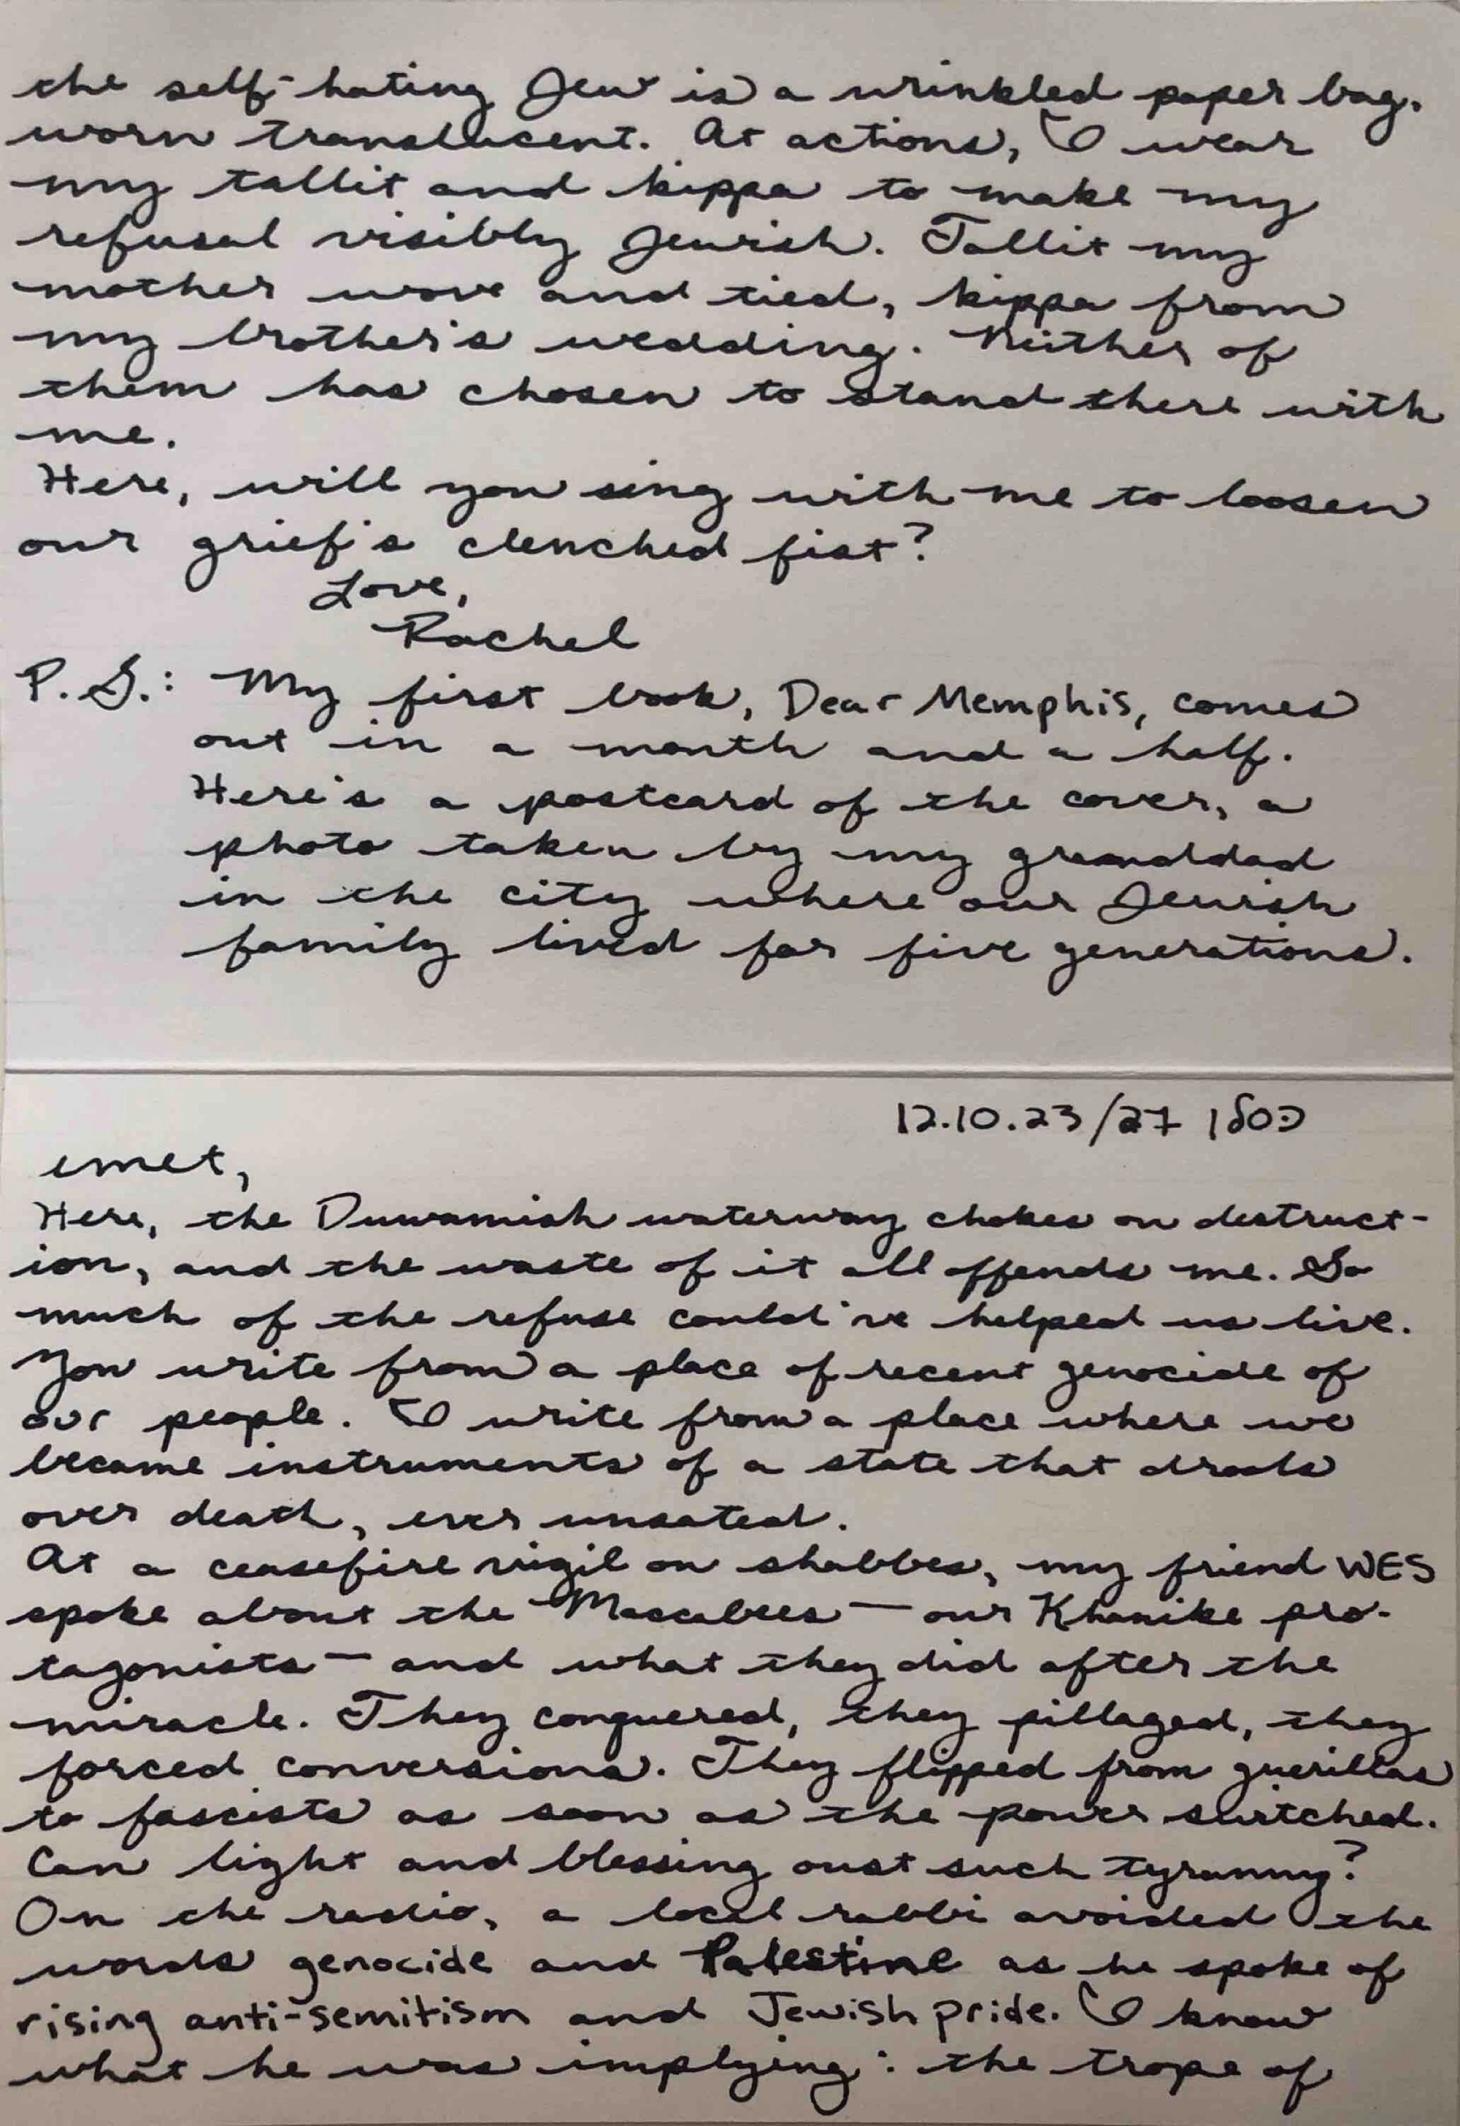 the self-hating Jew is a wrinkled paper bag.
worn translucent. At actions, I wear
my tallit and kippa to make my
refusal visibly Jewish. Tallit my
mother wove and tied, kippa from
my brother's wedding. Neither of
them has chosen to stand there with
me.
Here, will you sing with me to loosen
our grief's clenched fist?
Love,
Rachel
P.S.: My first book, Dear Memphis, comes
out in a month and a half.
Here's a postcard of the cover, a
photo taken by my granddad
in the city where our Jewish
family lived for five generations.
12.10.23/27 כסלו
emet,
Here, the Duwamish waterway chokes on destruct-
ion, and the waste of it all offends me. So
much of the refuse could've helped us live.
You write from a place of recent genocide of
our people. I write from a place where we
became instruments of a state that drools
over death, ever unsated.
At a ceasefire vigil on shabbes, my friend WES
spoke about the Maccabees — our Khanike pro-
tagonists — and what they did after the
miracle. They conquered, they pillaged, they
forced conversions. They flipped from guerillas
to fascists as soon as the power switched.
Can light and blessing oust such tyranny?
On the radio, a local rabbi avoided the
words genocide and Palestine as he spoke of
rising anti-semitism and Jewish pride. I know
what he was implying: the trope of